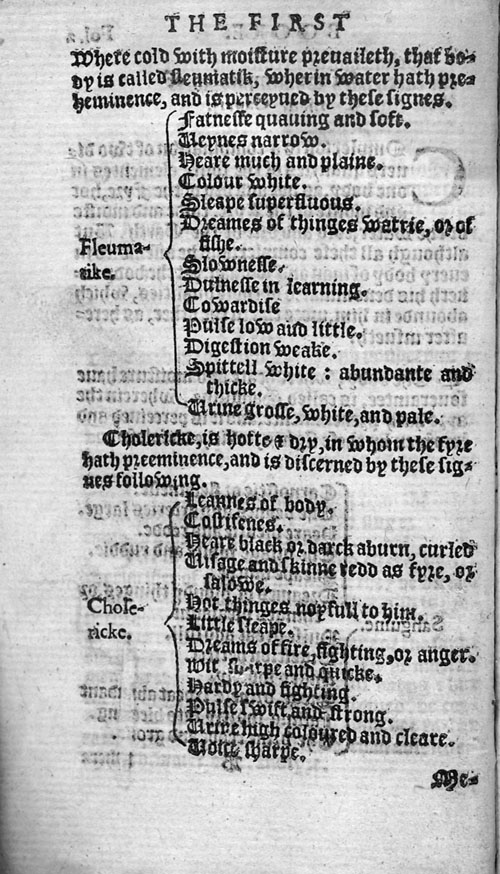 THE FIRST
Where cold with moisture preuaileth, that bo-
dy is called fleumatik, wherin water hath pre-
heminence, and is perceyued by these signes.
Fatnesse quauing and soft.
Ueynes narrow.
Heare much and plaine.
Colour white.
Sleape superfluous.
Dreames of thinges watrie, or of
fishe.
Fleuma-
tike.
Slownesse.
Dulnesse in learning.
Cowardise
Pulse low and little.
Digestion weake.
Spittell white : abundante and
thicke.
Urine grosse, white, and pale.
Cholericke, is hotte & dry, in whom the fyre
hath preeminence, and is discerned by these sig-
nes following.
Leannes of body.
Costifenes.
Heare black or darck aburn, curled
Uisage and skinne redd as fyre, or
salowe.
Hot thinges noyfull to him.
Chole-
ricke.
Little sleape.
Dreams of fire, fighting, or anger.
Wit sharpe and quicke.
Hardy and fighting.
Pulse swift and strong.
Urine high coloured and cleare.
Uoice sharpe.
Me-